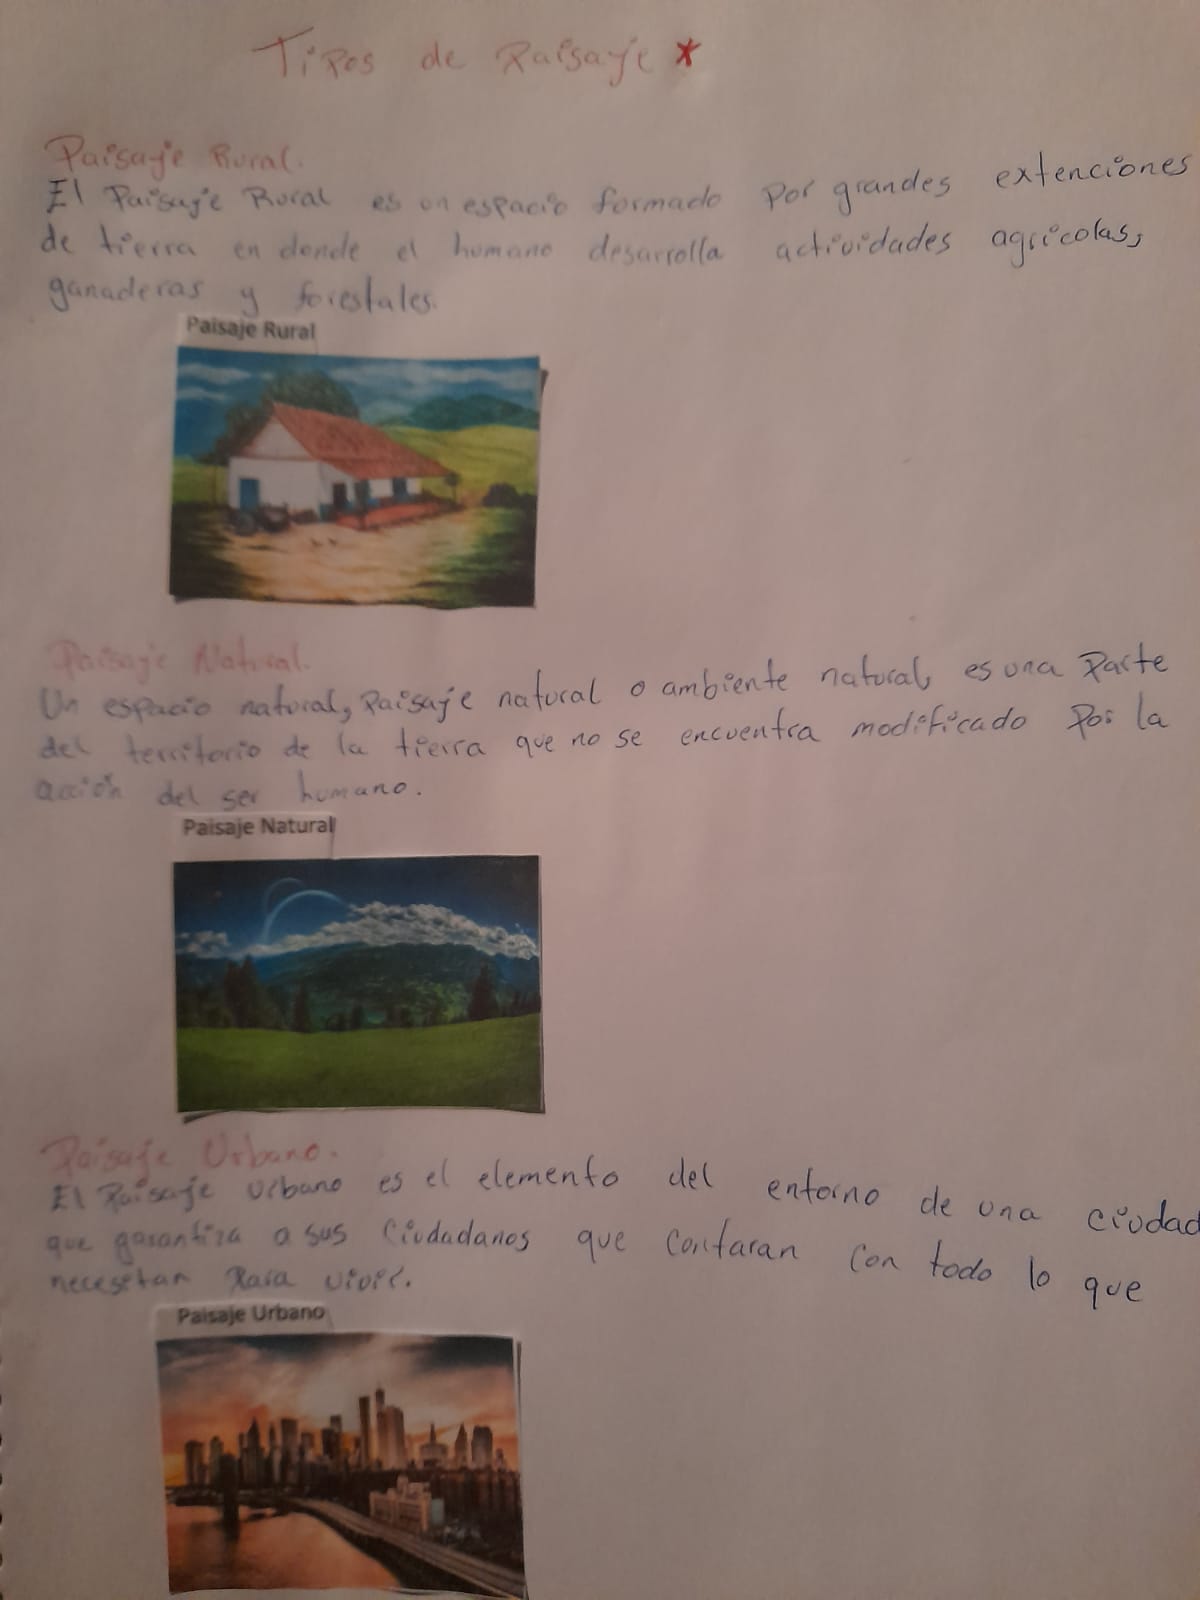 Tipos de Paisaje *
Paisaje Rural.
El Paisaje Rural es un espacio formado por grandes extenciones
de tierra en donde el humano desarrolla actividades agricolas,
ganaderas y forestales.
Paisaje Rural
Paisaje Natural.
Un espacio natural, Paisaje natural o ambiente natural, es una Parte
del territorio de la tierra que no se encuentra modificado Por la
acción del ser humano.
Paisaje Natural
Paisaje Urbano.
El Paisaje Urbano es el elemento del entorno de una ciudad
que garantiza a sus Ciudadanos que contaran con todo lo que
necesitan Para vivir.
Paisaje Urbano